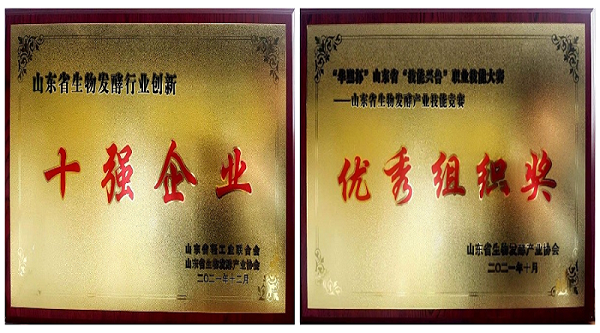 山东省生物发酵行业创新
十强企业
山东省轻工业联合会
山东省生物发酵产业协会
二〇二一年十二月
杯”山东省“技能兴鲁”职业技能大赛
——山东省生物发酵产业技能竞赛
优秀组织奖
山东省生物发酵产业协会
二〇二一年十月